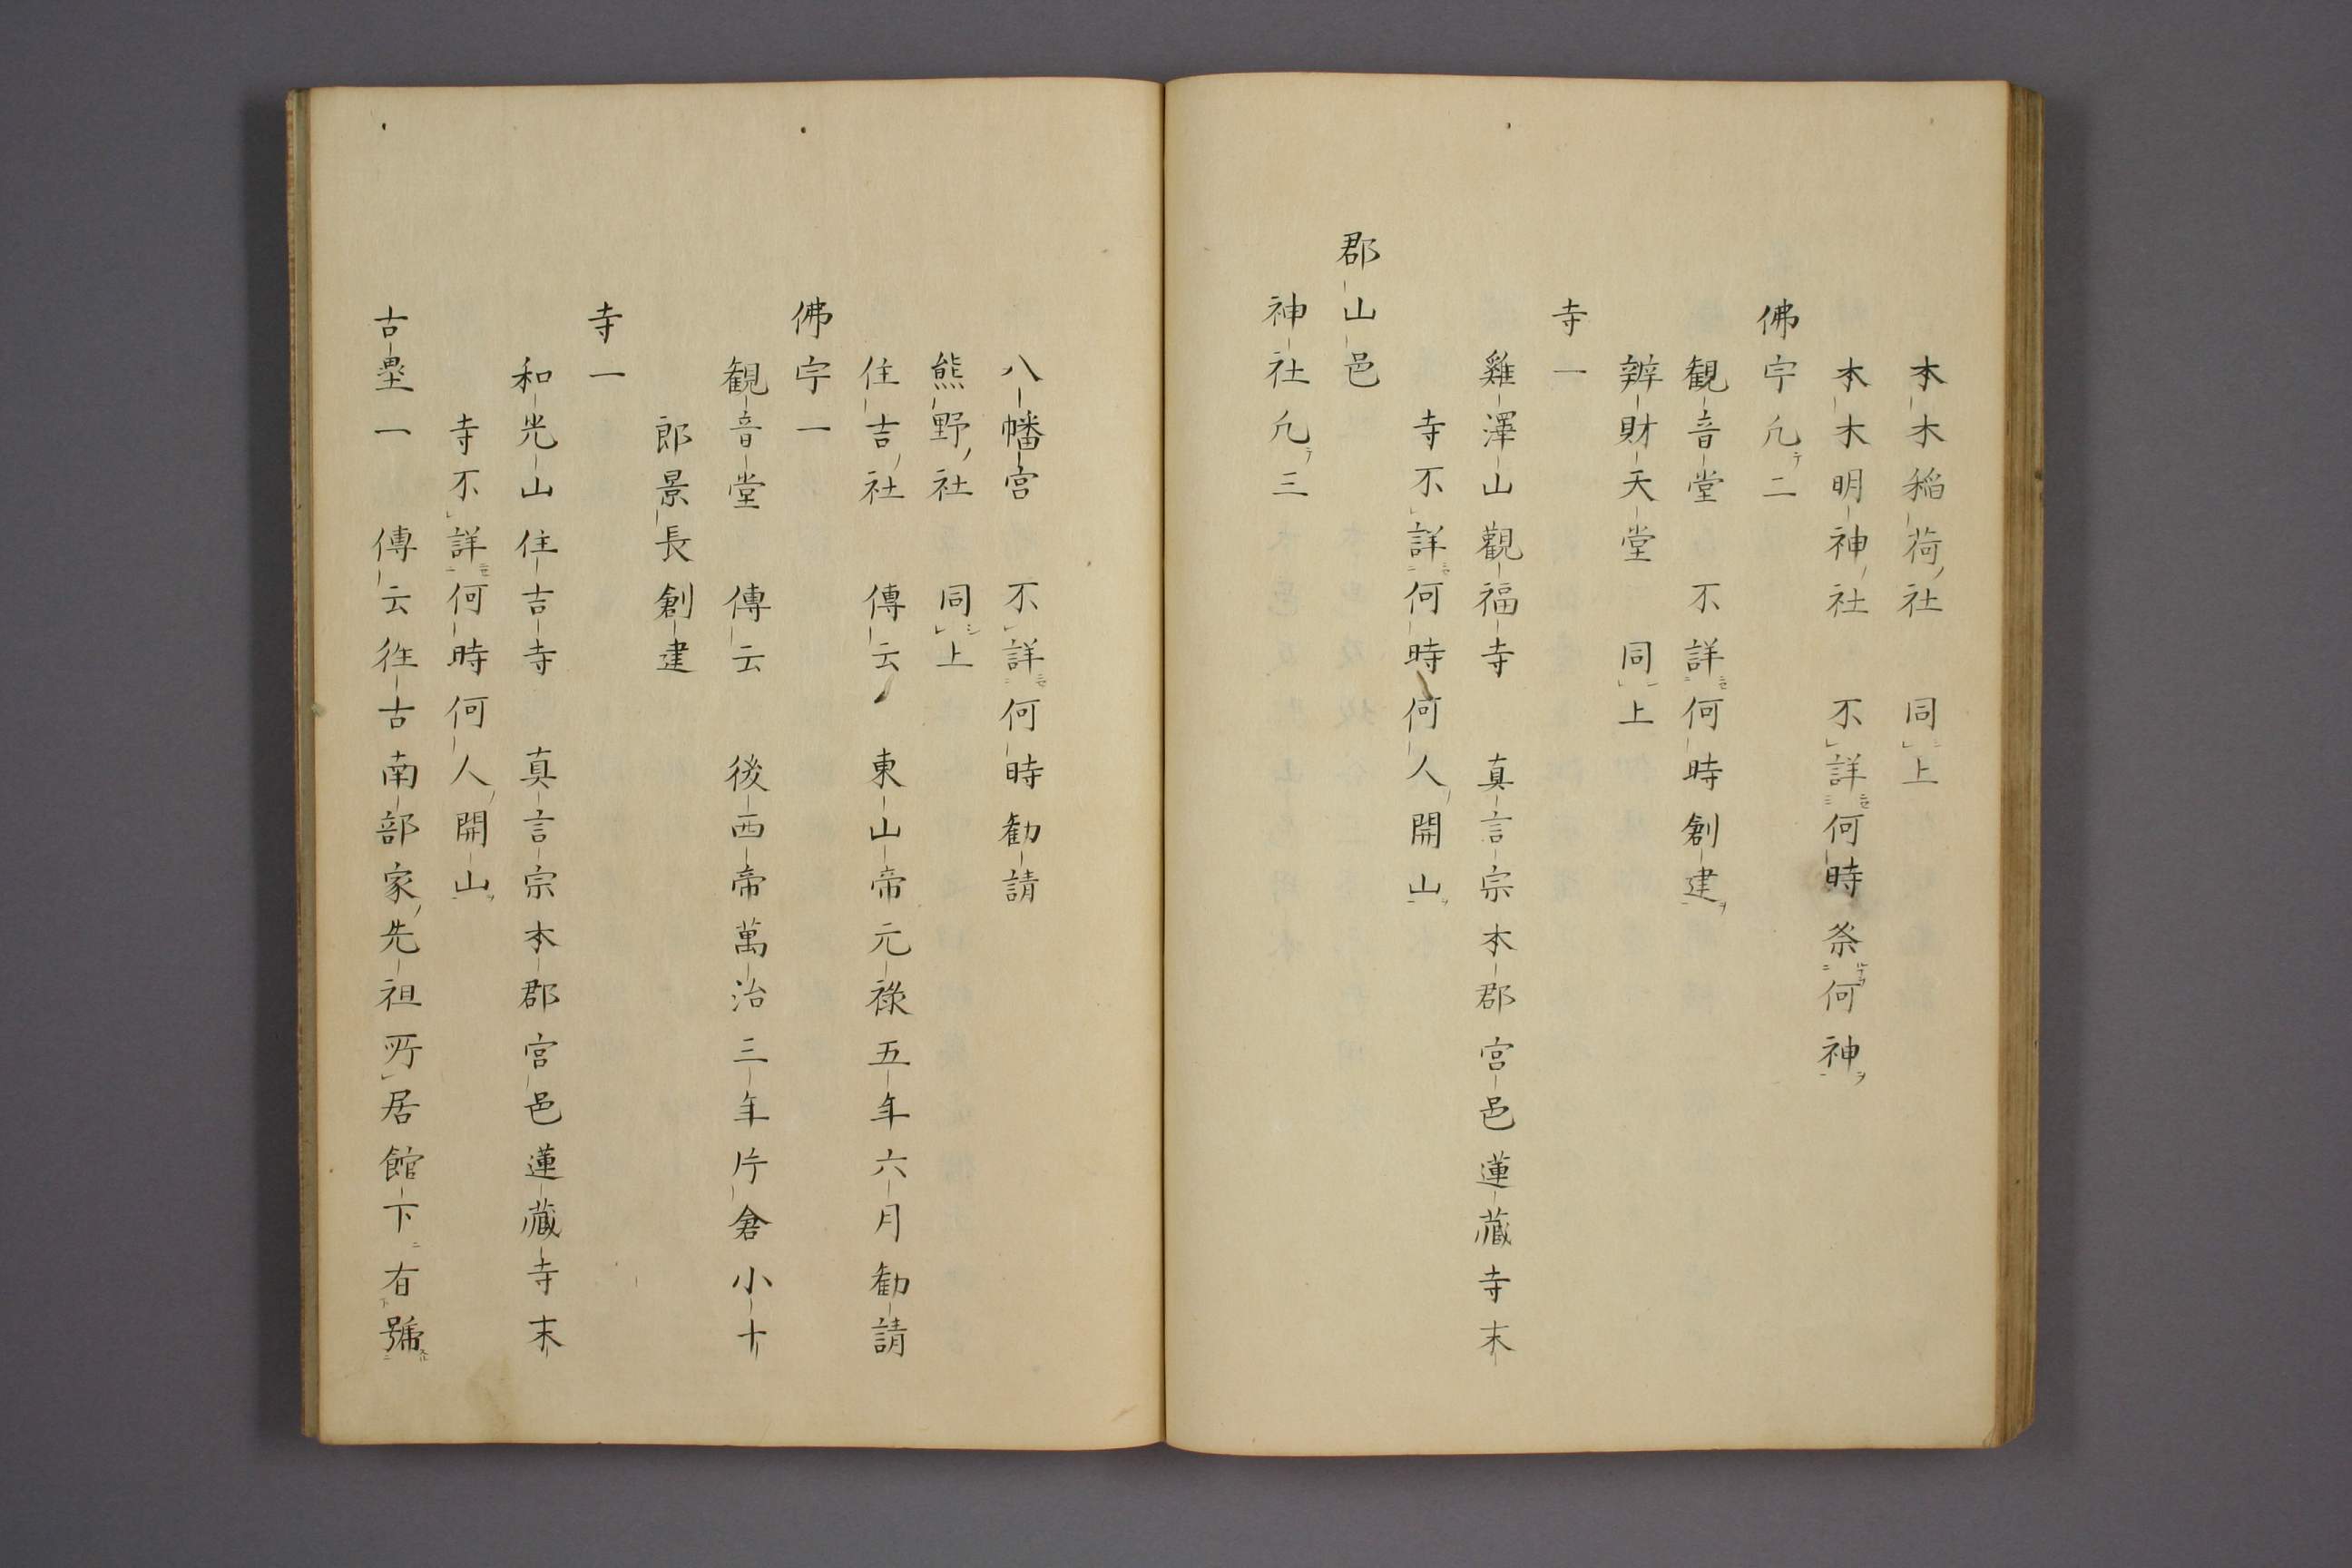 本木稲荷ノ社　同シ上
本木明神ノ社　不詳何時祭何神ヲ
佛宇凢テ二
観音堂　不詳何時創建ヲ
辨財天堂　同上
寺一
雞澤山觀福寺　真言宗本郡宮邑蓮藏寺末
寺不詳何時何人ノ開山ヲ
郡山邑
神社凢テ三
八幡宮　不詳何時勸請
熊野ノ社　同シ上
住吉ノ社　傳云　東山帝元祿五年六月勸請
佛宇一
観音堂　傳云　後西帝萬治三年片倉小十
郎景長創建
寺一
和光山住吉寺　真言宗本郡宮邑蓮藏寺末
寺不詳何時何人ノ開山ヲ
古壘一　傳云徃古南部家ノ先祖所居館下有號